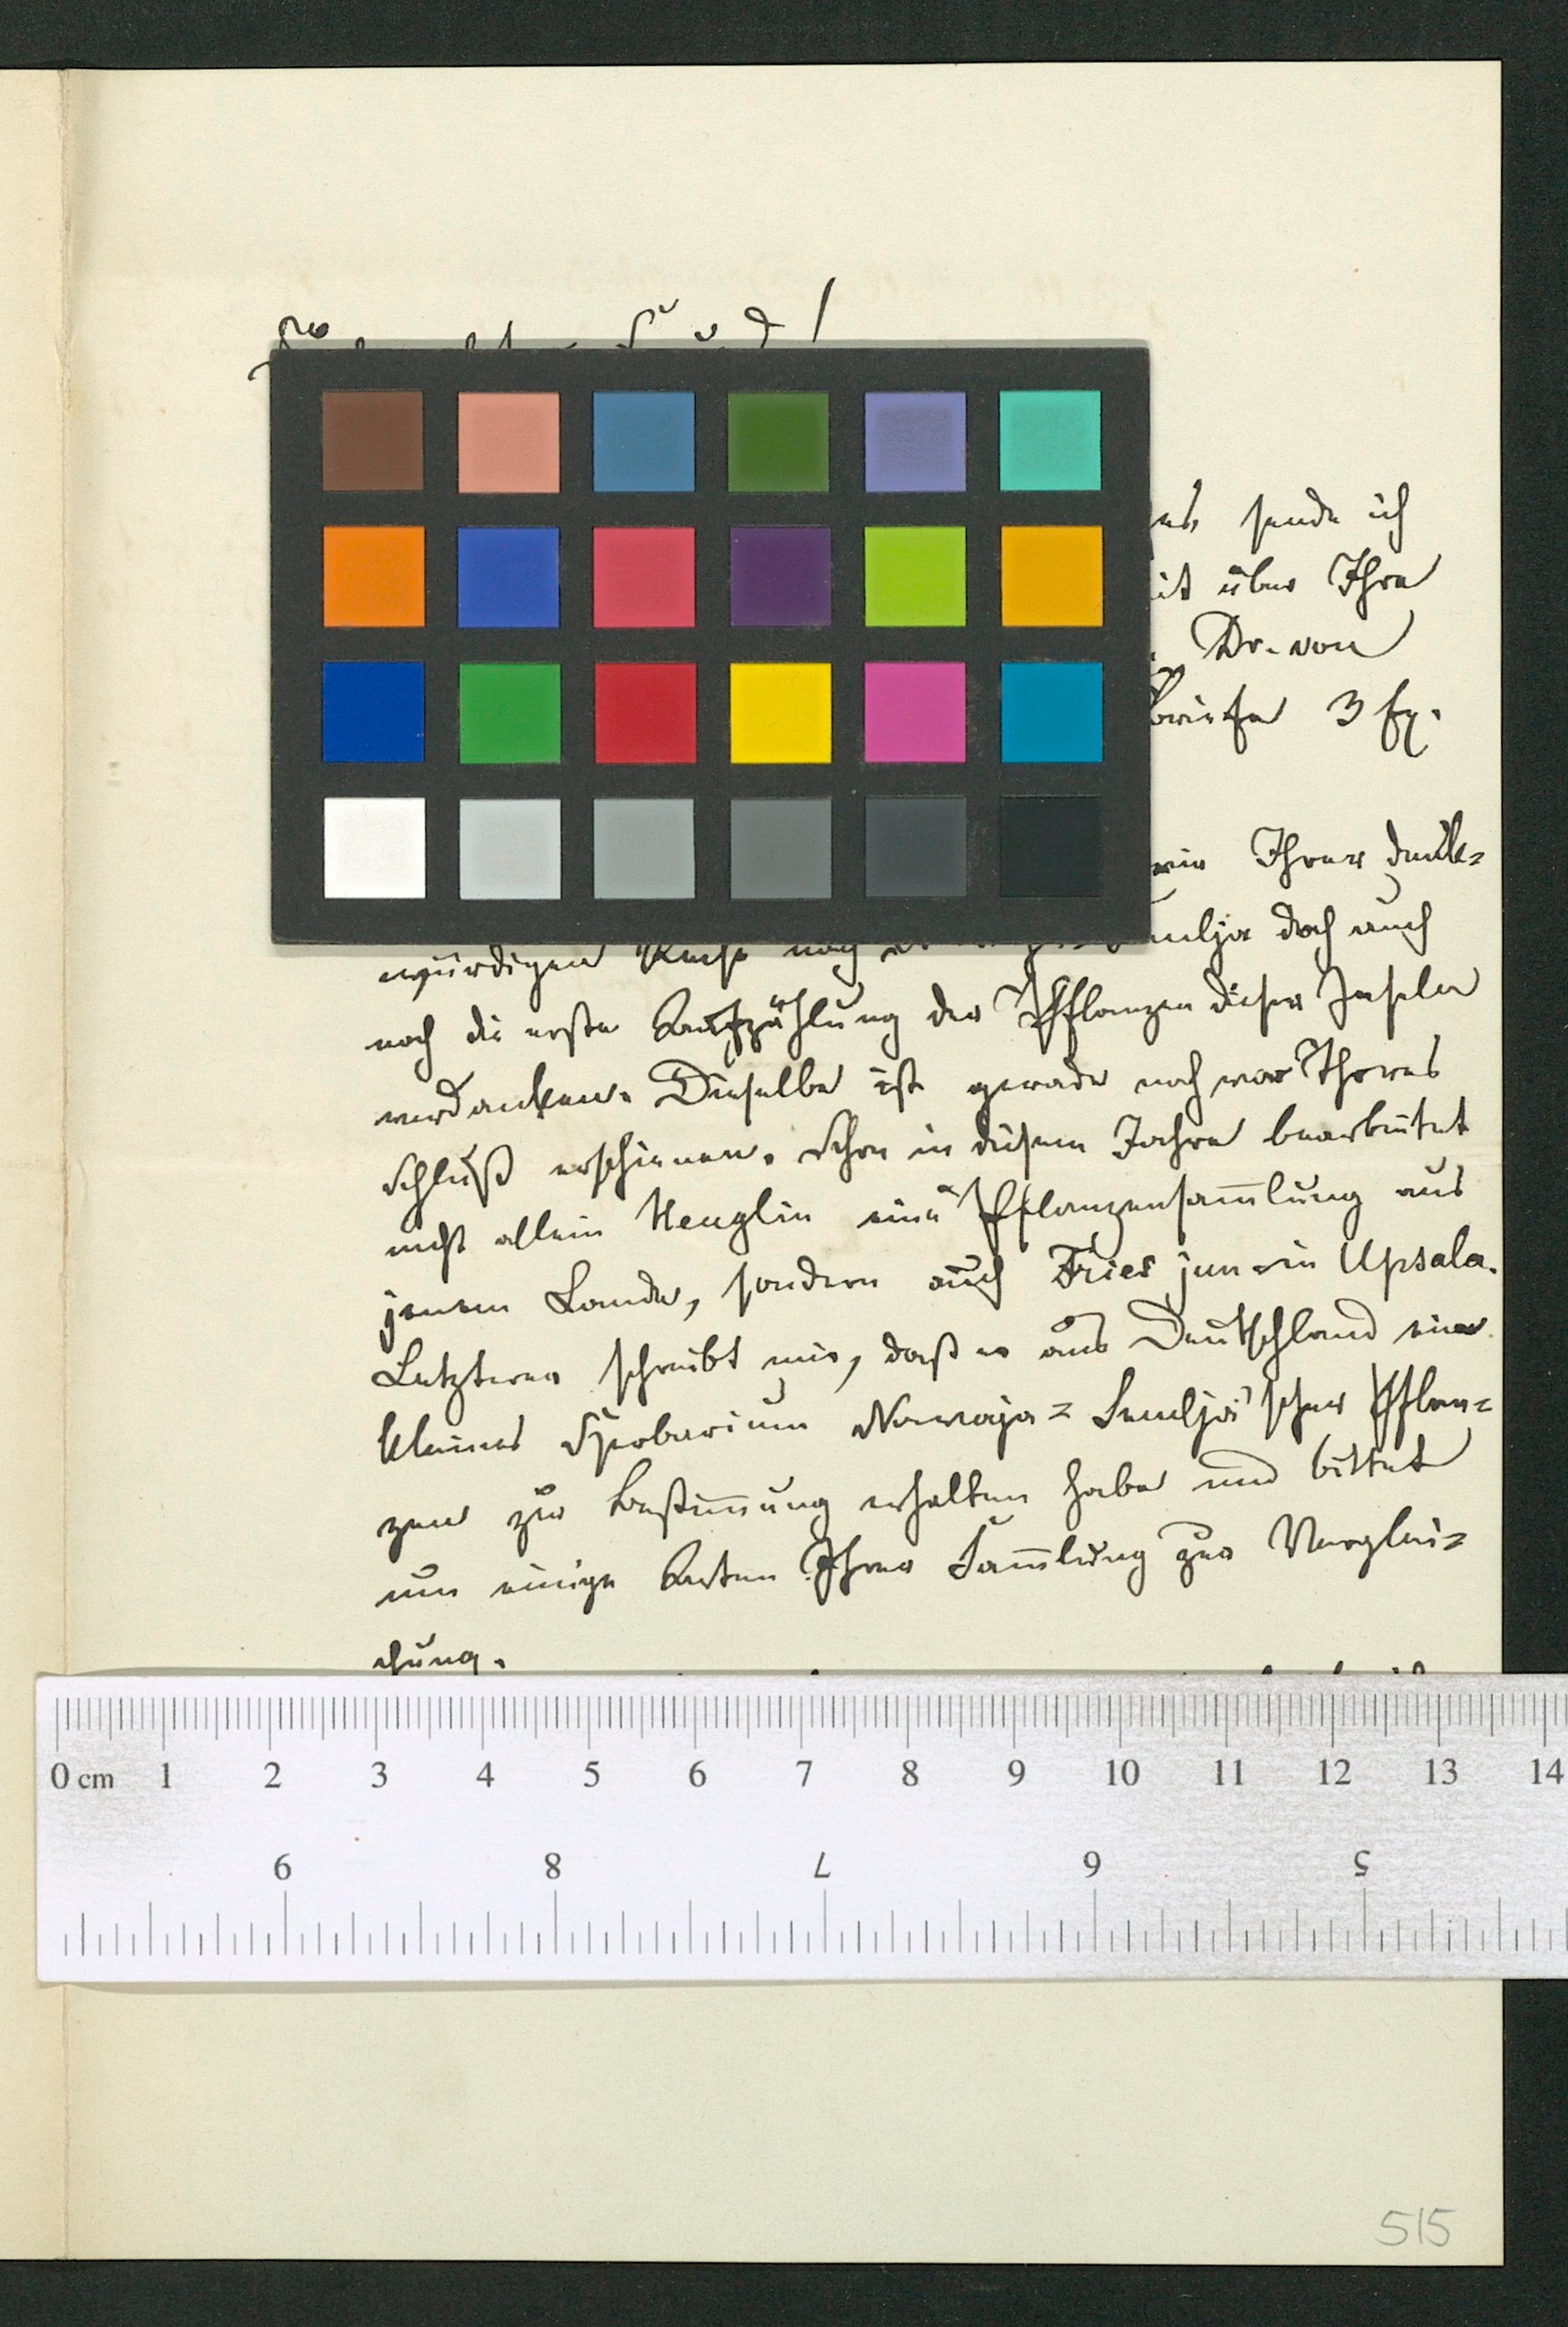 sende ich
über Ihre
Dr. von
briefe 3 fr.
wir Ihrer denk=
würdigen Reise nach doch auch
noch die erste Aufzählung der Pflanzen dieser Inseln
verdanken. Dieselbe ist gerade noch vor Thores
schluß erschienen. Schon in diesem Jahre bearbeitet
nicht allein Heuglin eine Pflanzensam̅lung aus
jenem Lande, sondern auch Fries jun. in Upsala.
Letzterer schreibt mir, daß er aus Deutschland ein
kleines Herbarium Nowaja=Semlja'scher Pflan=
zen zur Bestim̅ung erhalten habe und bittet
um einige Arten Ihrer Sam̅lung zur Verglei=
chung.
0 cm 1 2 3 4 5 6 7 8 9 10 11 12 13 14
9 8 7 6 5
515